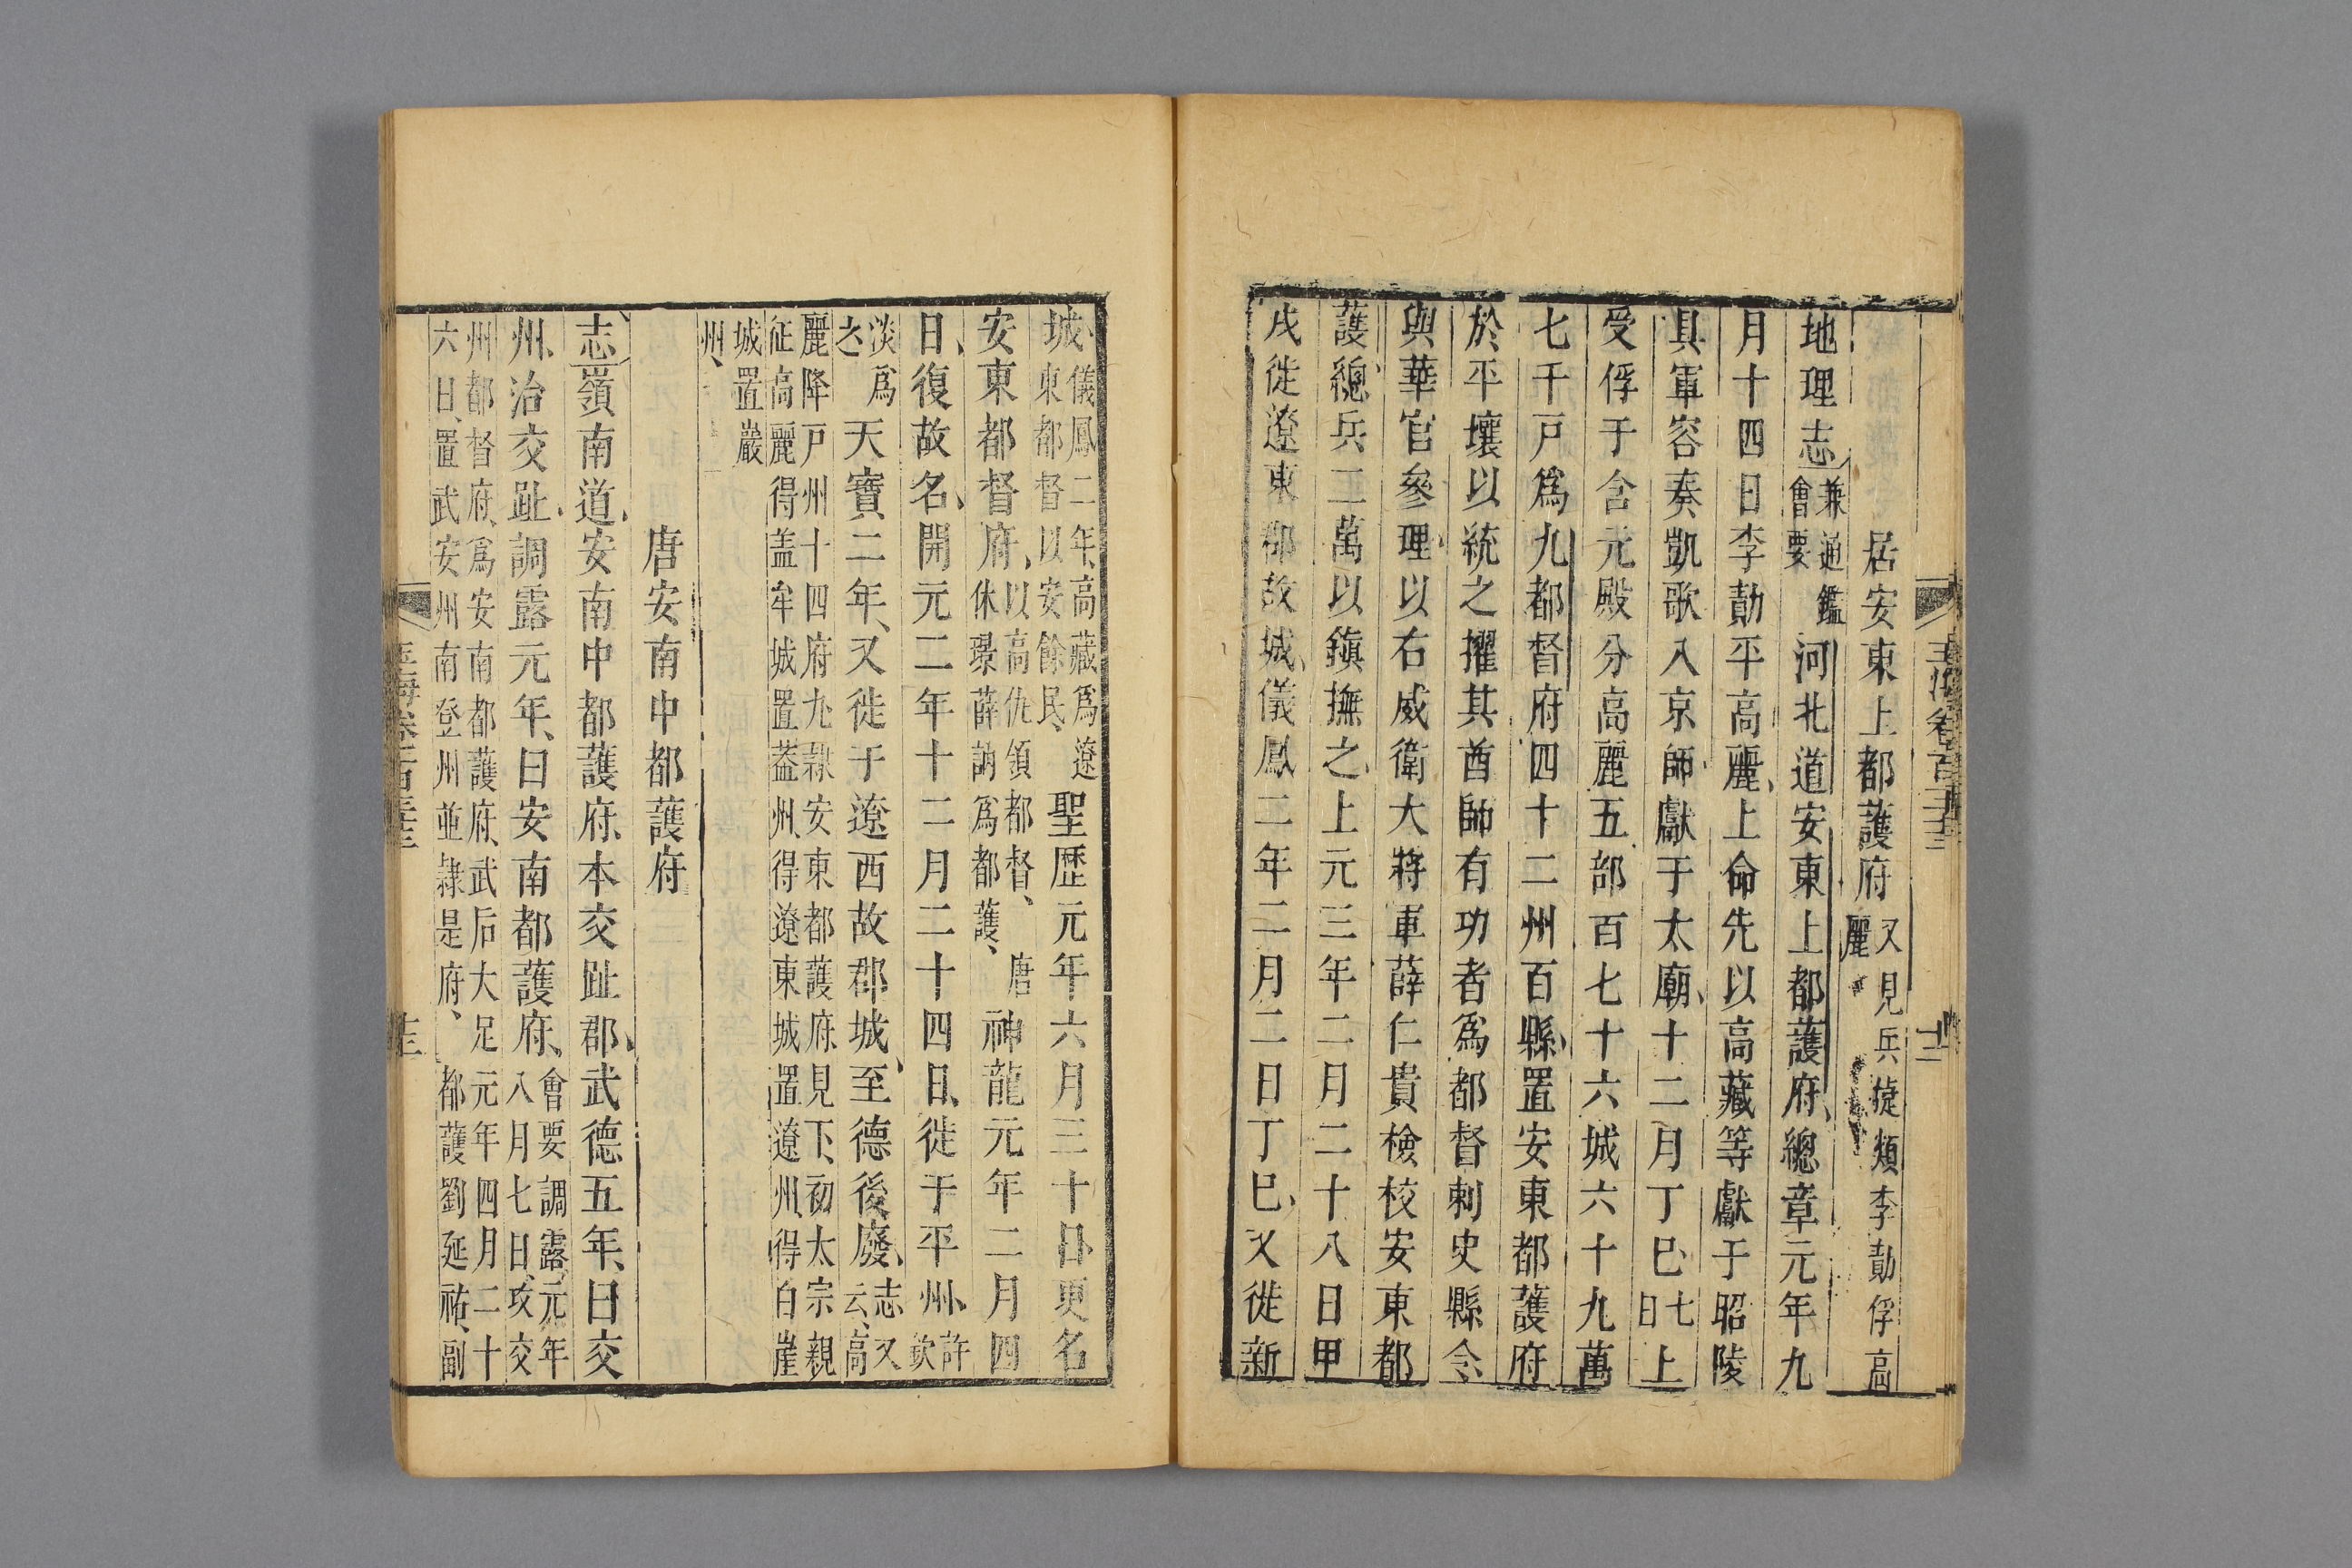 玉海卷百三十三
居安東上都護府又見兵捷類李勣俘高麗
地理志兼通鑑會要河北道安東上都護府總章元年九
月十四日李勣平高麗上命先以高藏等獻于昭陵
具軍容奏凱歌入京師獻于太廟十二月丁巳七日上
受俘于含元殿分高麗五部百七十六城六十九萬
七千戸爲九都督府四十二州百縣置安東都護府
於平壤以統之擢其酋帥有功者爲都督刺史縣令
與華官參理以右威衛大將軍薛仁貴檢校安東都
護總兵二萬以鎭撫之上元三年二月二十八日甲
戌徙遼東郡故城儀鳳二年二月二日丁巳又徙新
城儀鳳二年高藏爲遼東都督以安餘民聖歷元年六月三十日更名
安東都督府以高仇須都督唐休璟薛訥爲都護神龍元年二月四
日復故名開元二年十二月二十四日徙于平州許欽
淡爲之天寶二年又徙于遼西故郡城至德後廢志又云高
麗降戸州十四府九隷安東都護府見下初太宗親
征高麗得盖牟城置蓋州得遼東城置遼州得白崖
城置巖
州
唐安南中都護府
志嶺南道安南中都護府本交趾郡武德五年曰交
州治交趾調露元年曰安南都護府會要調露元年八月七日改交
州都督府爲安南都護府武后大足元年四月二十
六日置武安州南登州並隷是府都護劉延祐副
玉海卷百三十三